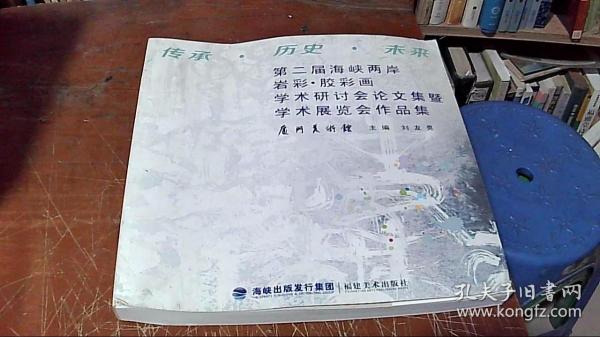 传承 · 历史 · 未来
第二届海峡两岸
岩彩·胶彩画
学术研讨会论文集暨
学术展览会作品集
厦门美术馆 主编 刘友奥
海峡出版发行集团 福建美术出版社
孔夫子旧书网
www.kongfz.com